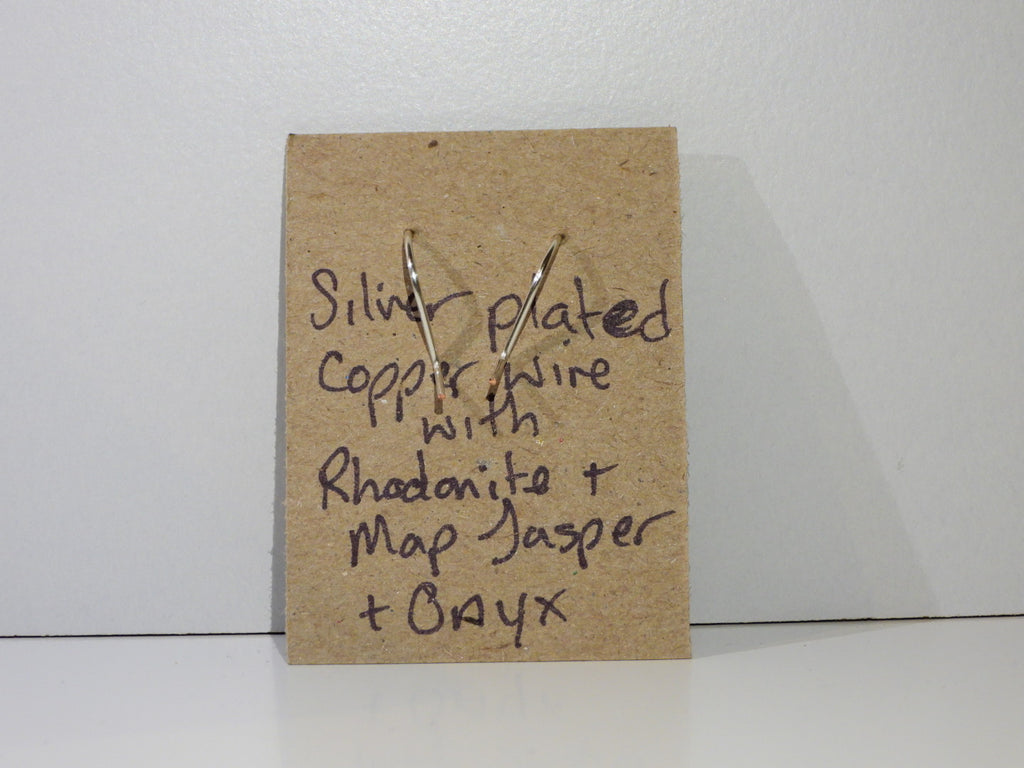 Silver plated
Copper wire
with
Rhodonite +
Map Jasper
+ Onyx